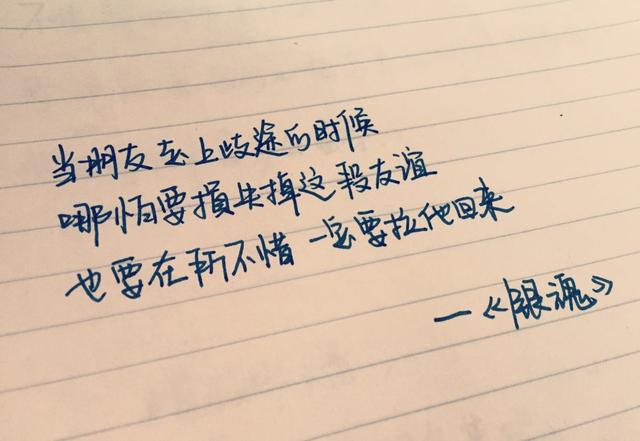 当朋友走上歧途的时候
哪怕要损失掉这段友谊
也要在所不惜 一定要拉他回来
—《银魂》